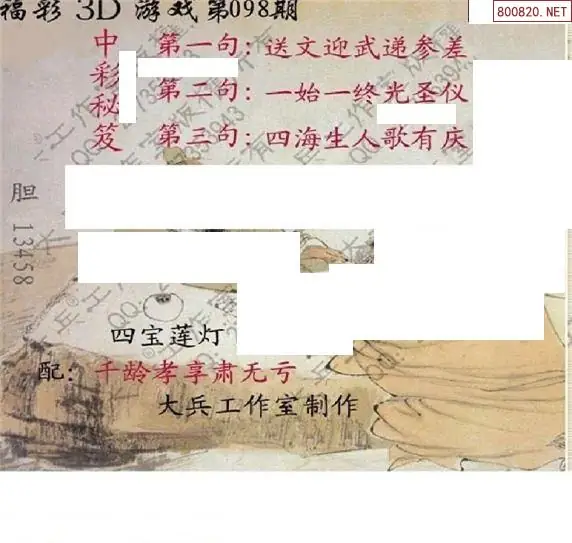 福彩 3D 游戏第098期
800820.NET
中彩秘笈
第一句：送文迎武递参差
第二句：一始一终光圣仪
第三句：四海生人歌有庆
胆 13458
四宝莲灯
配：千龄孝享肃无亏
大兵工作室制作